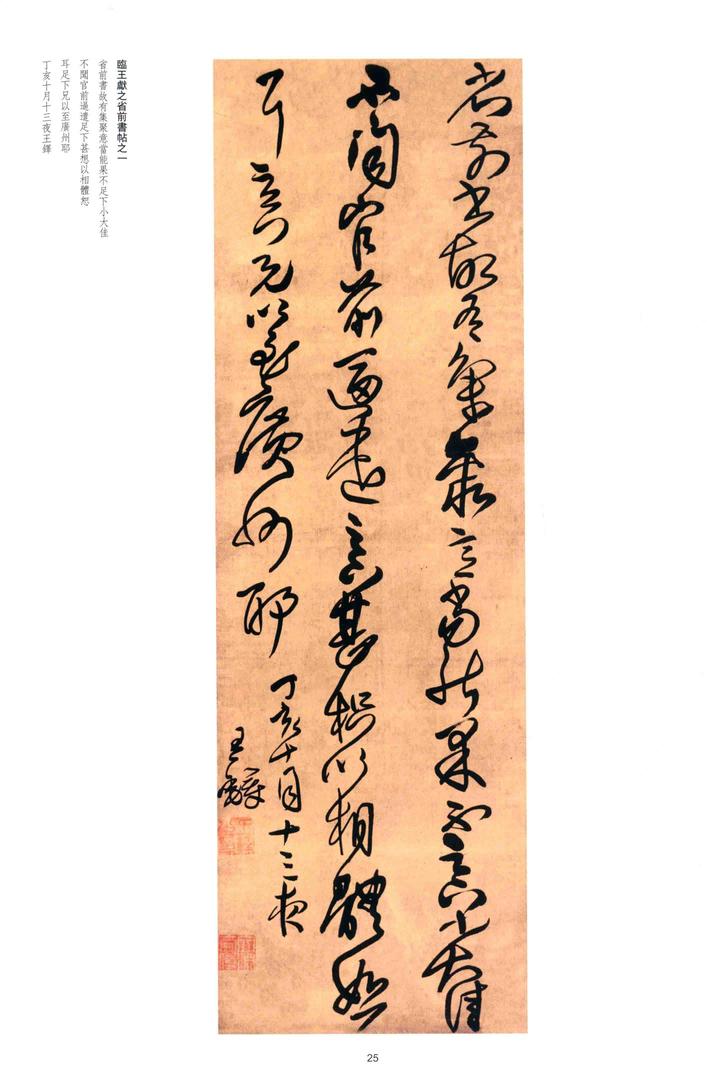 臨王獻之省前書帖之一
省前書故有集聚意當能果不足下小大佳
不聞官前逼遣足下甚想以相體恕
耳足下兄以至廣州耶
丁亥十月十三夜王鐸
省前書故有集聚意當能果不足下小大佳
不聞官前逼遣足下甚想以相體恕
耳足下兄以至廣州耶
丁亥十月十三夜
王鐸
25